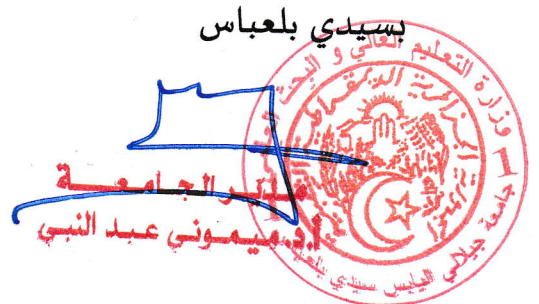 بسيدي بلعباس
وزارة التعليم العالي و البحث
الجزائرية الديمقراطية
جامعة جيلالي اليابس سيدي بلعباس
مدير الجامعة
أ.د. ميموني عبد النبي